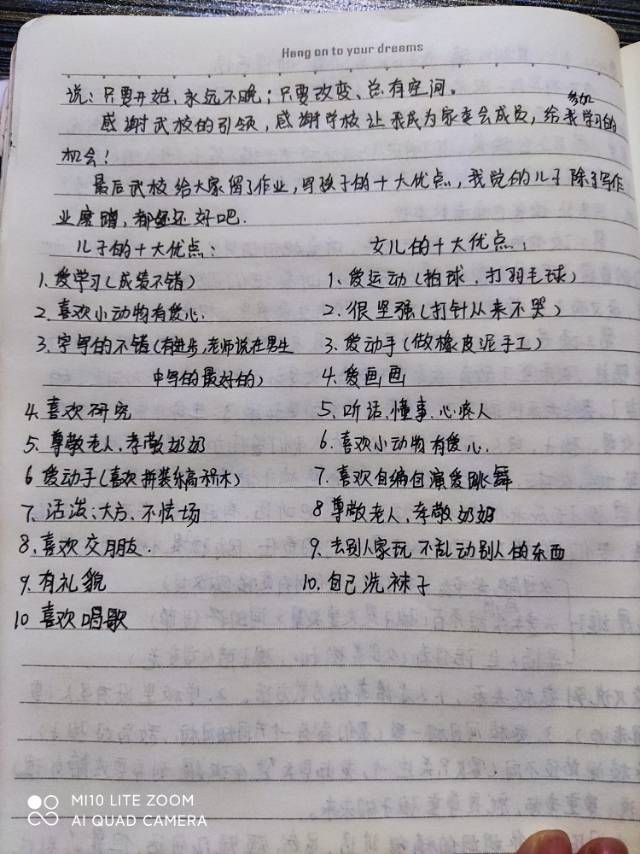 Hang on to your dreams
说：只要开始、永远不晚；只要改变、总有空间。
感谢武校的引领，感谢学校让我成为家委会成员，给我参加学习的
机会！
最后武校给大家留了作业，写孩子的十大优点，我觉的儿子除了写作
业磨蹭，都还好吧．
儿子的十大优点： 女儿的十大优点：
1.爱学习（成绩不错） 1.爱运动（拍球．打羽毛球）
2.喜欢小动物有爱心． 2.很坚强（打针从来不哭）
3.字写的不错（有进步，老师说在男生 3.爱动手（做橡皮泥手工）
中写的最好的） 4.爱画画
4.喜欢研究 5.听话．懂事．心疼人
5.尊敬老人，孝敬奶奶 6.喜欢小动物有爱心．
6 爱动手（喜欢拼装乐高积木） 7.喜欢自编自演爱跳舞
7.活泼、大方、不怯场 8 尊敬老人，孝敬奶奶
8.喜欢交朋友． 9.去别人家玩 不乱动别人的东西
9.有礼貌 10.自己洗袜子
10 喜欢唱歌
MI 10 LITE ZOOM
AI QUAD CAMERA